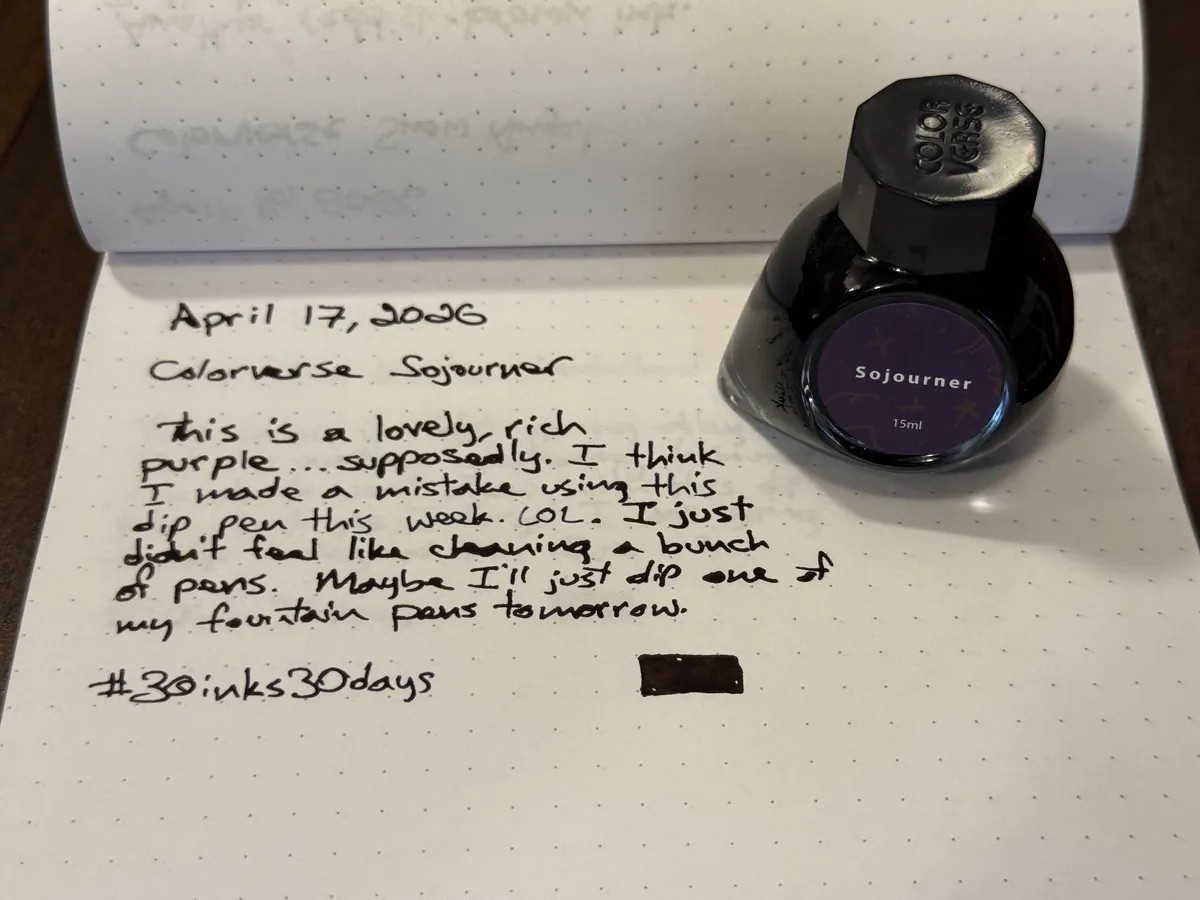 COLOR
VERSE
Sojourner
15ml
April 17, 2026
Colorverse Sojourner
This is a lovely, rich
purple... supposedly. I think
I made a mistake using this
dip pen this week. LOL. I just
didn't feel like cleaning a bunch
of pens. Maybe I'll just dip one of
my fountain pens tomorrow.
#30inks30days